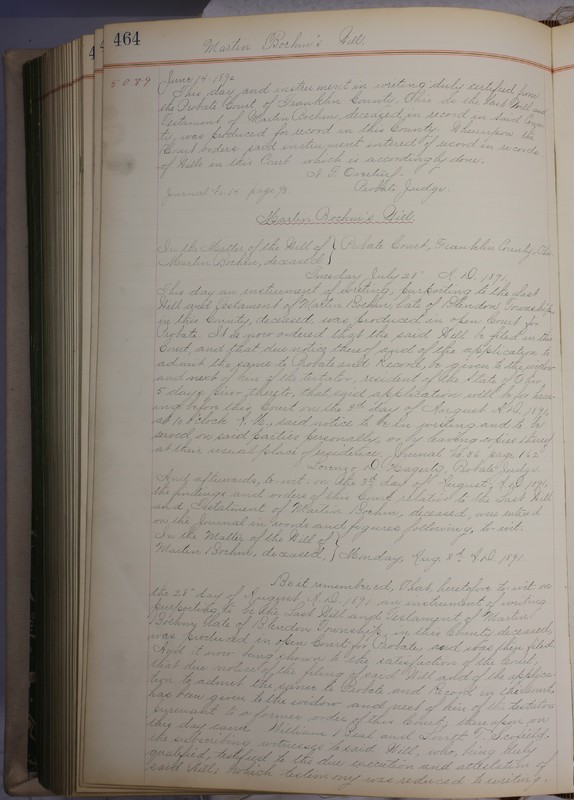 464
Martin Boehm's Will.
5089
June 14. 1892
This day and instrument in writing duly certified from
the Probate Court of Franklin County, Ohio do the Last Will and
Testament of Martin Boehm, deceased, in record in said Coun
ty, was produced for record in this County. Whereupon the
Court orders said instrument entered of record in records
of Wills in this Court which is accordingly done.
Probate Judge.
Journal No. 15 page 73.
Martin Boehm's Will.
In the Matter of the Will of } Probate Court, Franklin County, Ohio
Martin Boehm, deceased }
Tuesday July 28" A.D. 1891,
This day an instrument of writing, purporting to be the Last
Will and Testament of Martin Boehm, late of Blendon Township,
in this County, deceased, was produced in open Court for
Probate. It is now ordered that the said Will be filed in this
Court, and that due notice thereof and of the application to
admit the same to Probate and Record, be given to the widow
and next of kin of the testator, resident of the State of Ohio,
5 days prior thereto, that said application will be for hear-
ing before this Court on the 3rd day of August A.D. 1891,
at 10 O'clock A.M., said notice to be in writing and to be
served on said parties personally, or by leaving copies thereof
at their usual place of residence. Journal No. 36 page 162
Lorenzo D. Hagerty, Probate Judge.
And afterwards, to wit: on the 3rd day of August, A.D. 1891,
the findings and orders of this Court relative to the Last Will
and Testament of Martin Boehm, deceased, were entered
on the Journal in words and figures following, to wit:
In the Matter of the Will of }
Martin Boehm, deceased, } Monday, Aug. 3rd A.D. 1891.
Be it remembered, That, heretofore to wit: on
the 28" day of August, A.D. 1891 an instrument of writing
purporting to be the Last Will and Testament of Martin
Boehm, late of Blendon Township, in this County, deceased,
was produced in open Court for Probate, and was then filed.
And it now being shown to the satisfaction of the Court,
that due notice of the filing of said Will and of the applica-
tion to admit the same to Probate and Record in this Court
has been given to the widow and next of kin of the testator
pursuant to a former order of this Court, thereupon on
this day came William and T. Scofield,
the subscribing witnesses to said Will, who, being duly
qualified, testified to the due execution and attestation of
said Will; which testimony was reduced to writing,